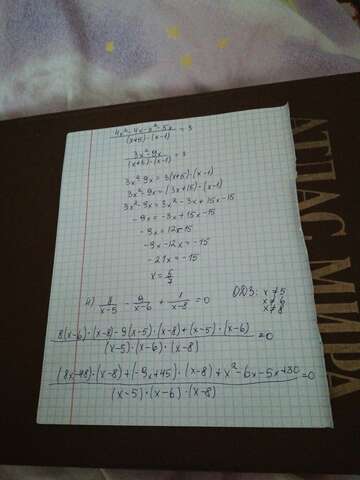 4x²-4x-x²-5x / (x+5)·(x-1) = 3
3x²-9x / (x+5)·(x-1) = 3
3x²-9x = 3(x+5)·(x-1)
3x²-9x = (3x+15)·(x-1)
3x²-9x = 3x²-3x+15x-15
-9x = -3x+15x-15
-9x = 12x-15
-9x-12x = -15
-21x = -15
x = 5/7
4) 8/(x-5) - 9/(x-6) + 1/(x-8) = 0 ОДЗ: x≠5
x≠6
x≠8
8(x-6)·(x-8)-9(x-5)·(x-8)+(x-5)·(x-6) / (x-5)·(x-6)·(x-8) = 0
(8x-48)·(x-8)+(-9x+45)·(x-8)+x²-6x-5x+30 / (x-5)·(x-6)·(x-8) = 0
АТЛАС МИРА